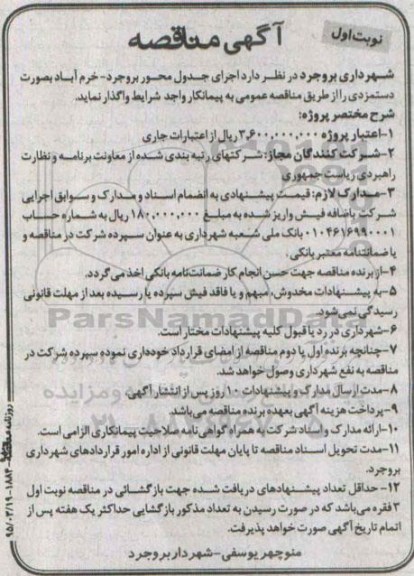 نوبت اول
آگهی مناقصه
شهرداری بروجرد در نظر دارد اجرای جدول محور بروجرد- خرم آباد بصورت
دستمزدی را از طریق مناقصه عمومی به پیمانکار واجد شرایط واگذار نماید.
شرح مختصر پروژه:
۱-اعتبار پروژه ۳،۶۰۰،۰۰۰،۰۰۰ ریال از اعتبارات جاری
۲-شرکت کنندگان مجاز: شرکتهای رتبه بندی شده از معاونت برنامه و نظارت
راهبردی ریاست جمهوری
۳-مدارک لازم: قیمت پیشنهادی به انضمام اسناد و مدارک و سوابق اجرایی
شرکت باضافه فیش واریز شده به مبلغ ۱۸۰،۰۰۰،۰۰۰ ریال به شماره حساب
۰۱۰۴۶۱۶۹۹۰۰۰۱ بانک ملی شعبه شهرداری به عنوان سپرده شرکت در مناقصه و
یا ضمانتنامه معتبر بانکی.
۴-از برنده مناقصه جهت حسن انجام کار ضمانتنامه بانکی اخذ می گردد.
۵-به پیشنهادات مخدوش، مبهم و یا فاقد فیش سپرده یا رسیده بعد از مهلت قانونی
رسیدگی نمی شود.
۶-شهرداری در رد یا قبول کلیه پیشنهادات مختار است.
۷-چنانچه برنده اول یا دوم مناقصه از امضای قرارداد خودداری نموده سپرده شرکت در
مناقصه به نفع شهرداری وصول خواهد شد.
۸-مدت ارسال مدارک و پیشنهادات ۱۰ روز پس از انتشار آگهی.
۹-پرداخت هزینه آگهی بعهده برنده مناقصه می باشد.
۱۰-ارائه مدارک و اسناد شرکت به همراه گواهی نامه صلاحیت پیمانکاری الزامی است.
۱۱-مدت تحویل اسناد مناقصه تا پایان مهلت قانونی از اداره امور قراردادهای شهرداری
بروجرد.
۱۲- حداقل تعداد پیشنهادهای دریافت شده جهت بازگشائی در مناقصه نوبت اول
۳ فقره می باشد که در صورت رسیدن به تعداد مذکور بازگشایی حداکثر یک هفته پس از
اتمام تاریخ آگهی صورت خواهد پذیرفت.
منوچهر یوسفی-شهردار بروجرد
ParsNamadData
۹۵/۰۳/۱۹-۱۸۸۴